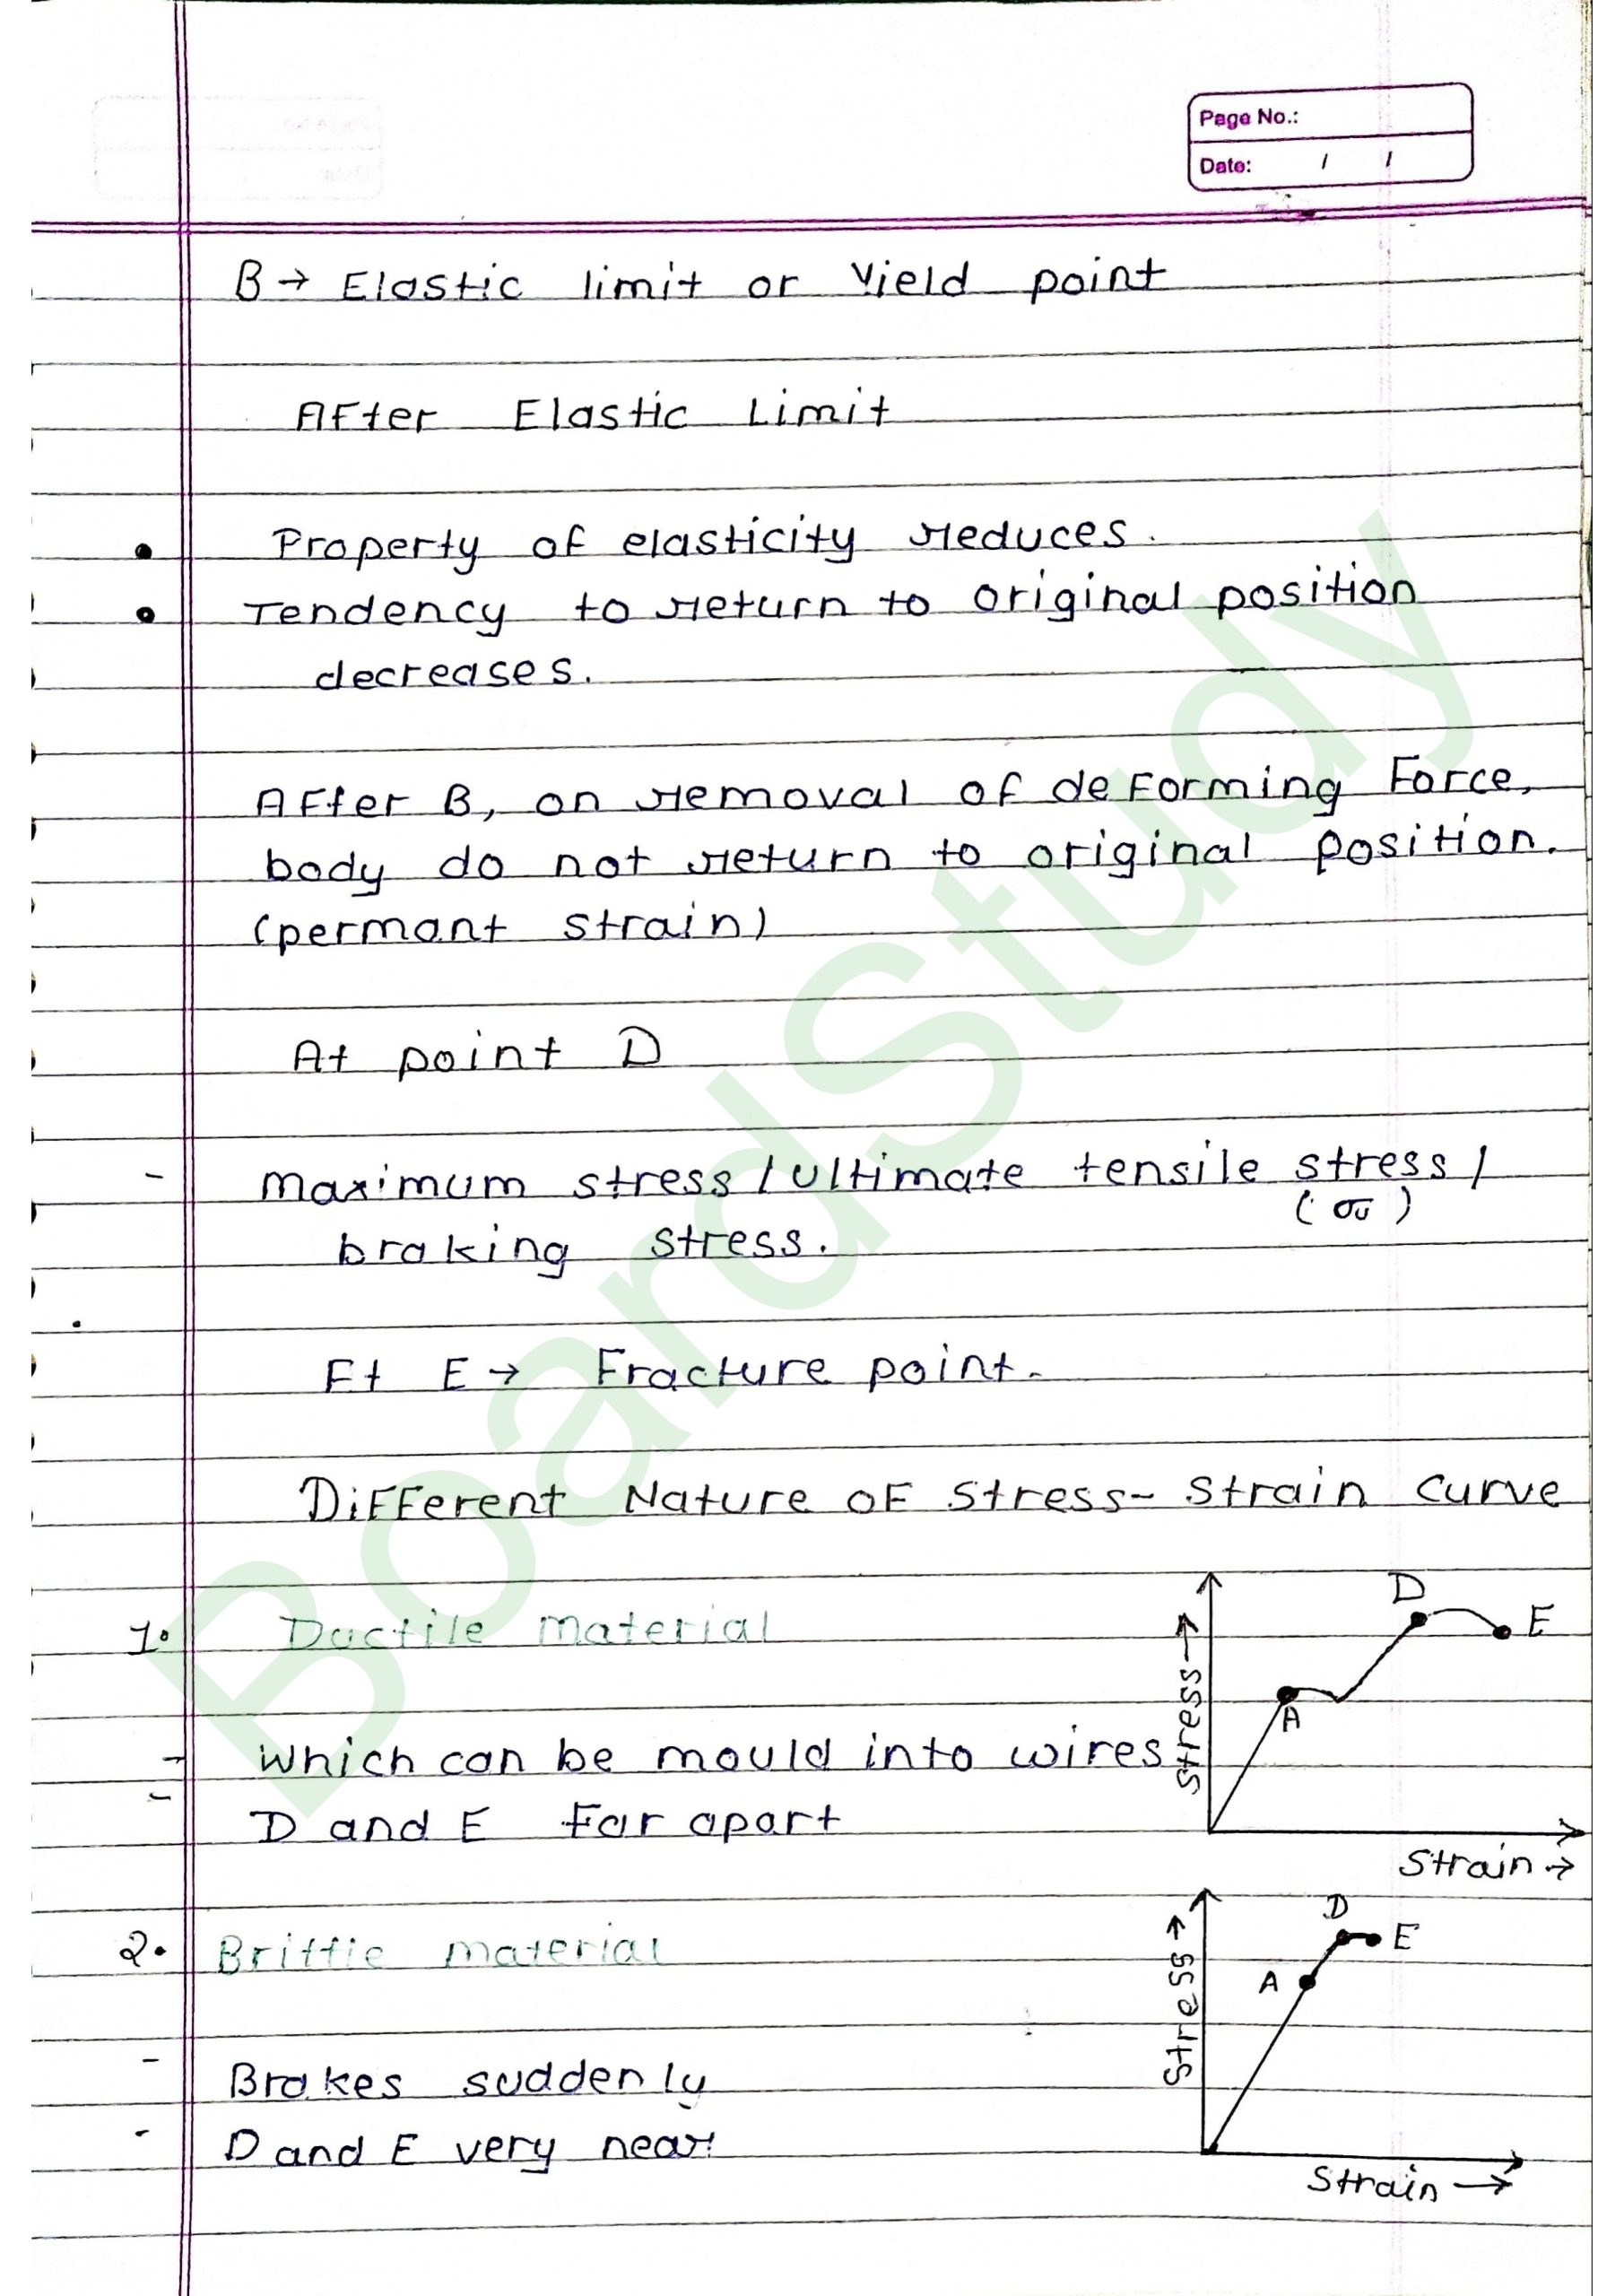 Page No.:
Date: / /
B → Elastic limit or Yield point
After Elastic Limit
• Property of elasticity reduces.
• Tendency to return to original position
decreases.
After B, on removal of deforming Force,
body do not return to original position.
(permant strain)
At point D
- Maximum stress / Ultimate tensile stress /
(σu)
braking stress.
Et E → Fracture point.
Different Nature of Stress- Strain Curve
1. Ductile material
- Which can be mould into wires
- D and E Far apart
Stress →
D
E
A
Strain →
2. Brittle material
- Brakes suddenly
- D and E very near
Stress →
D
E
A
Strain →
BoardStudy